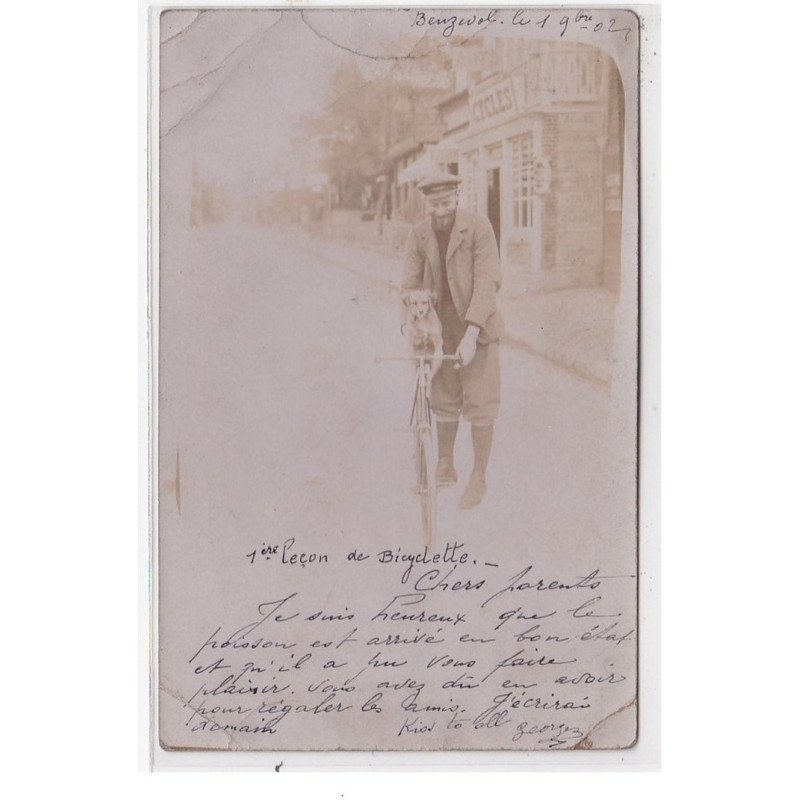 Benzeval. le 1 9bre 02
CYCLES
1ère leçon de Bicyclette._
Chers parents
Je suis heureux que le
poisson est arrivé en bon état
et qu'il a pu vous faire
plaisir. Vous avez dû en avoir
pour régaler les amis. J'écrirai
demain Kiss to all Georges